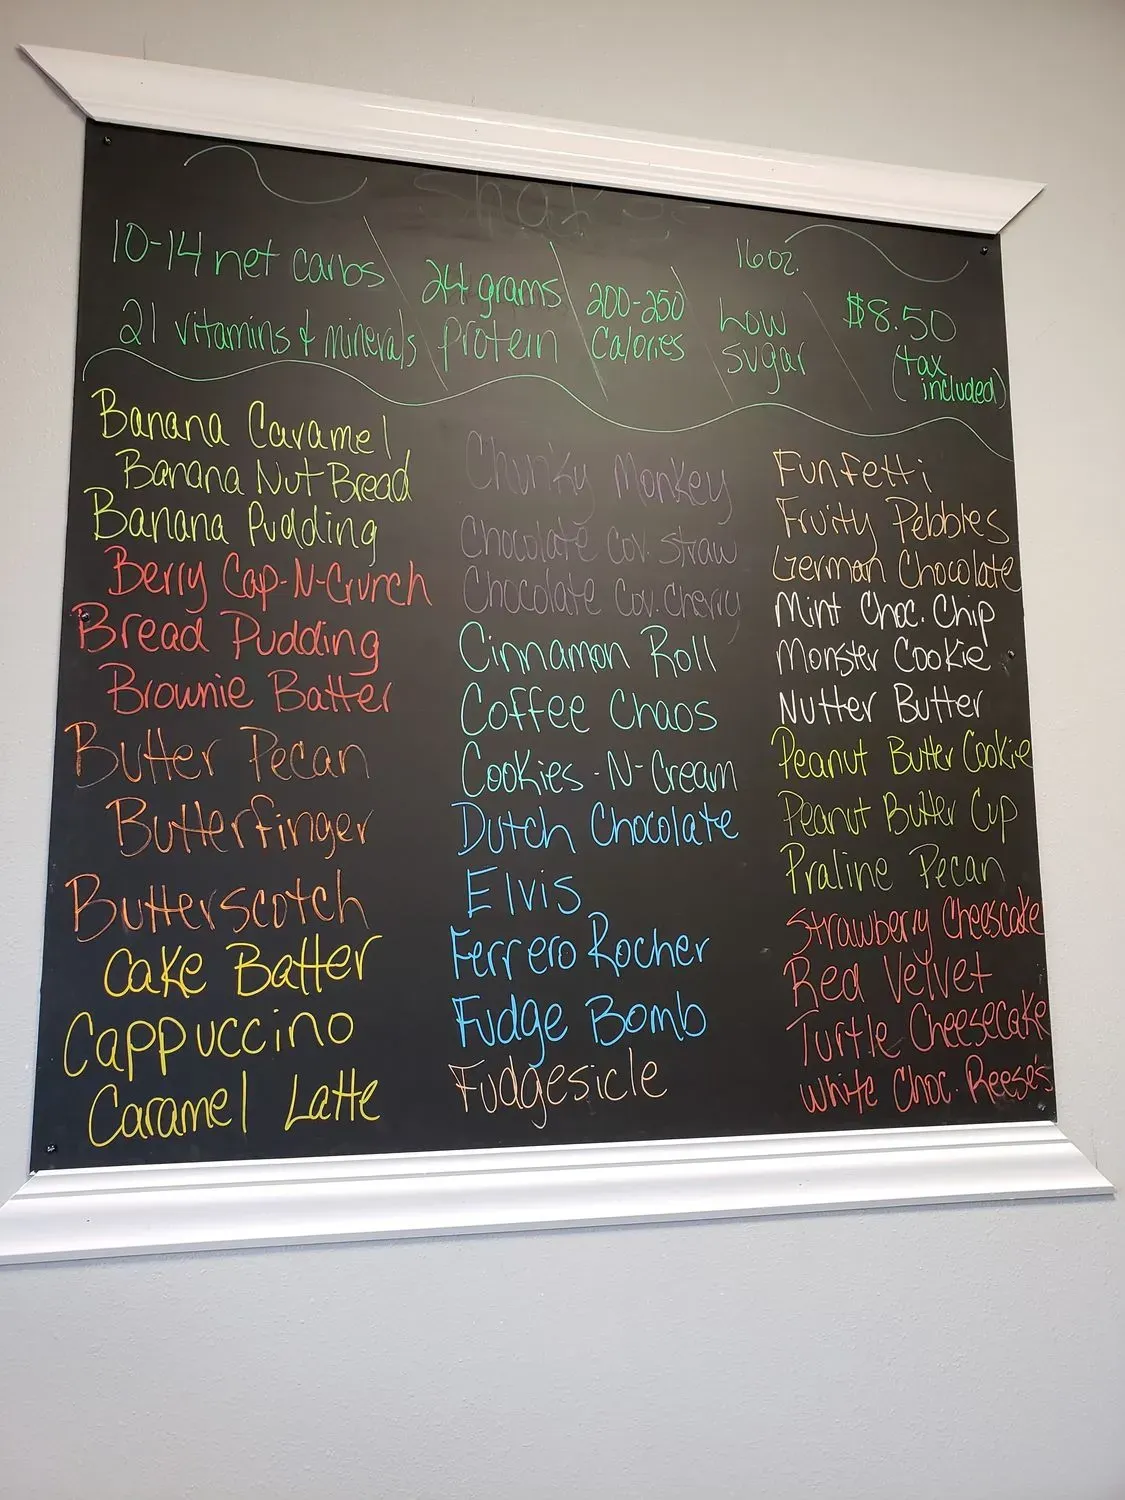 Shakes
10-14 net carbs
21 vitamins & minerals
24 grams
protein
200-250
Calories
16 oz.
Low
sugar
$8.50
(tax
included)
Banana Caramel
Banana Nut Bread
Banana Pudding
Berry Cap-N-Crunch
Bread Pudding
Brownie Batter
Butter Pecan
Butterfinger
Butterscotch
Cake Batter
Cappuccino
Caramel Latte
Chunky Monkey
Chocolate Cov. Straw
Chocolate Cov. Cherry
Cinnamon Roll
Coffee Chaos
Cookies-N-Cream
Dutch Chocolate
Elvis
Ferrero Rocher
Fudge Bomb
Fudgesicle
Funfetti
Fruity Pebbles
German Chocolate
Mint Choc. Chip
Monster Cookie
Nutter Butter
Peanut Butter Cookie
Peanut Butter Cup
Praline Pecan
Strawberry Cheescake
Red Velvet
Turtle Cheesecake
White Choc. Reese's